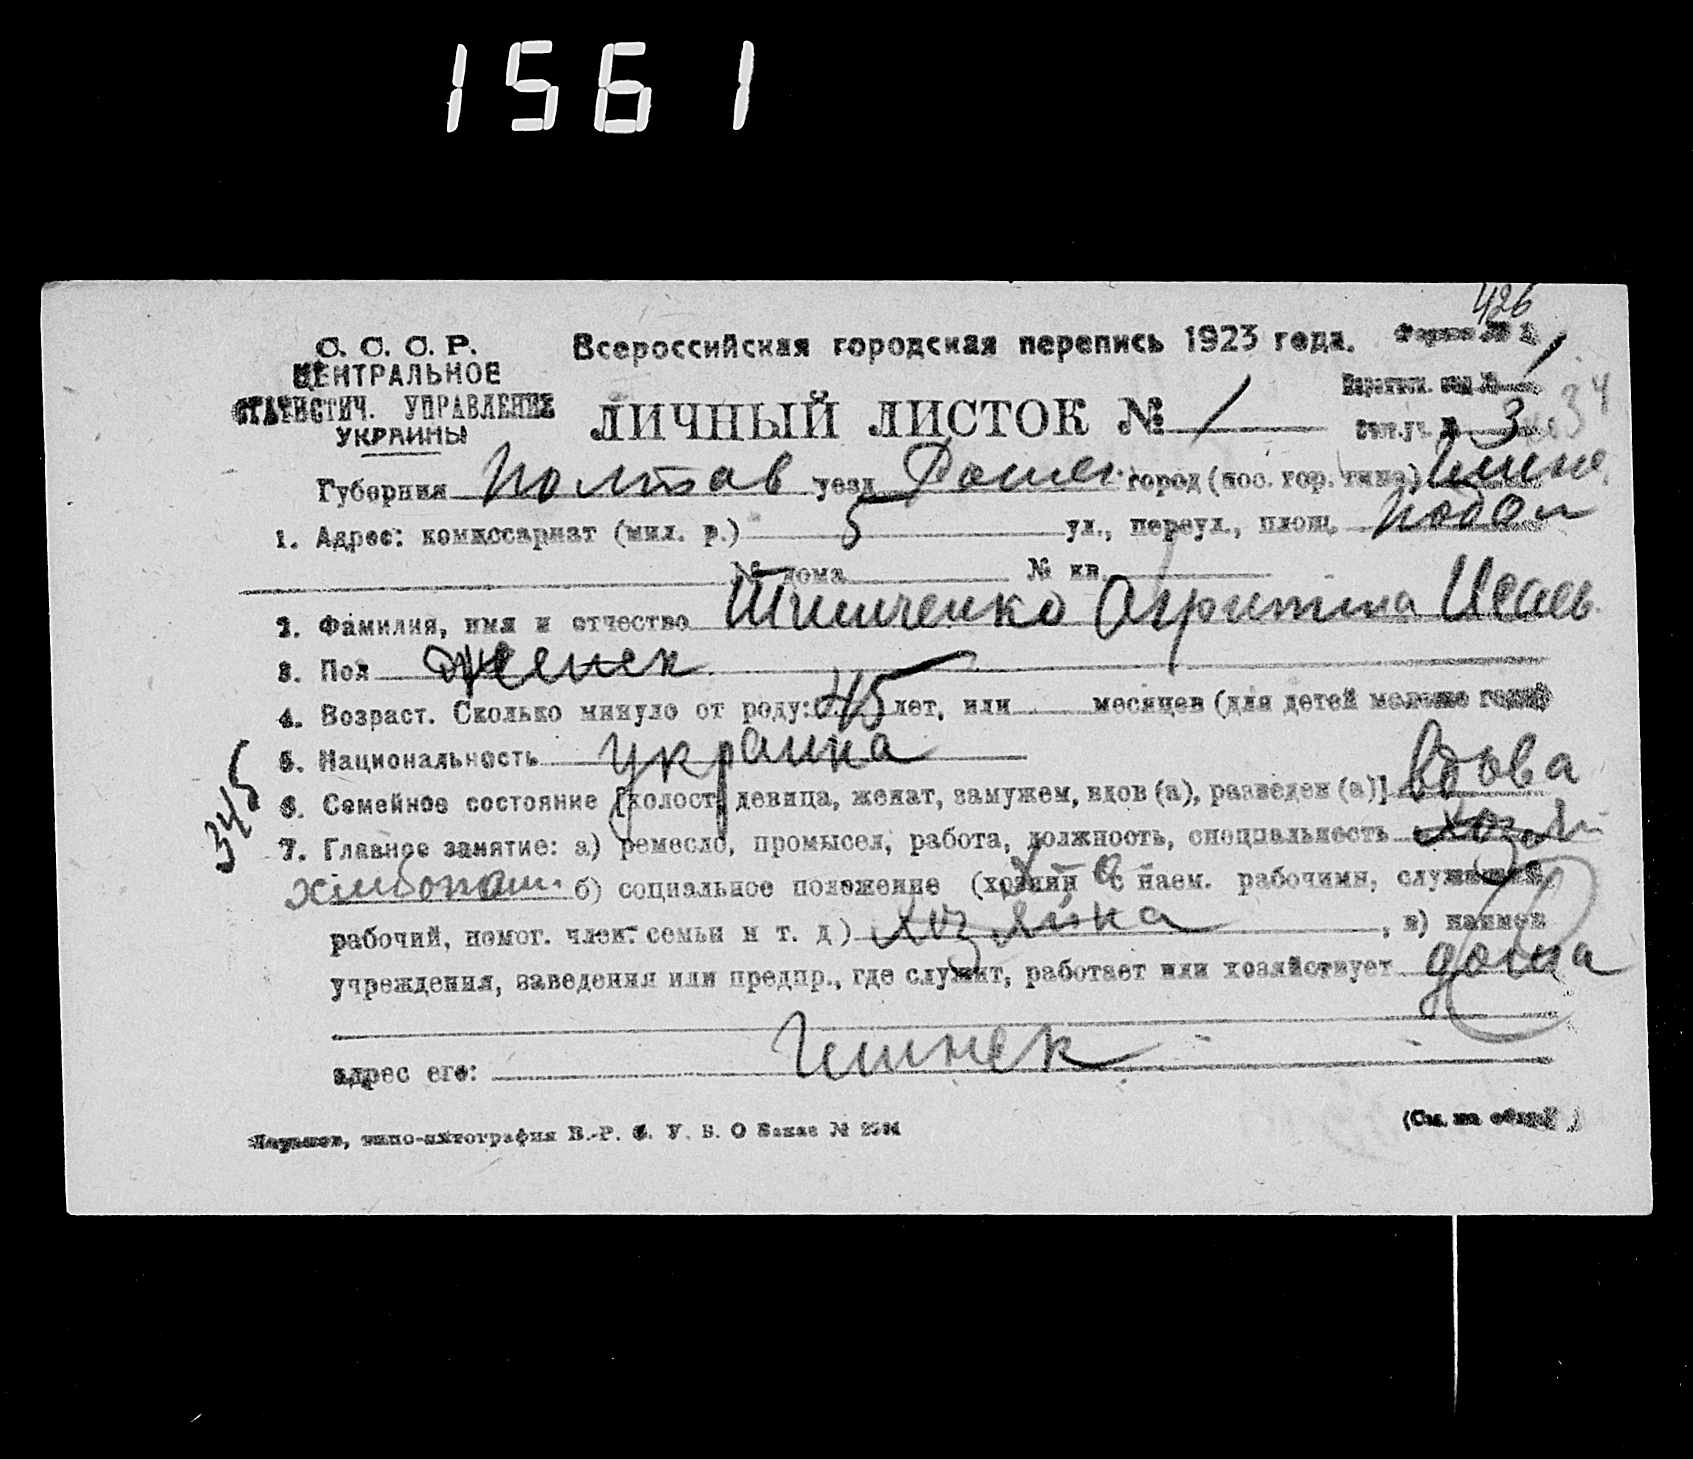 1561
426
С. С. С. Р.
ЦЕНТРАЛЬНОЕ
СТАТИСТИЧ. УПРАВЛЕНИЕ
УКРАИНЫ
Всероссийская городская перепись 1923 года. Форма № 1.
ЛИЧНЫЙ ЛИСТОК № 1
1
3 34
Губерния Полтав уезд город (пос. гор. типа)
1. Адрес: комиссариат (мил. р.) 5 ул., переул., площ. Подол
№ дома № кв.
2. Фамилия, имя и отчество
3. Пол женск.
4. Возраст. Сколько минуло от роду: 45 лет, или месяцев (для детей моложе года)
5. Национальность украинка
345
6. Семейное состояние [холост, девица, женат, замужем, вдов (а), разведен (а)] вдова
7. Главное занятие: а) ремесло, промысел, работа, должность, специальность
хлібопаш. б) социальное положение (хозяин с наем. рабочими, служащий,
рабочий, помог. член. семьи и т. д.) хозяйка, в) наимен
учреждения, заведения или предпр., где служит, работает или хозяйствует дома
адрес его:
типо-литография В.-Р. У. В. О Заказ №
(См. на обор.)